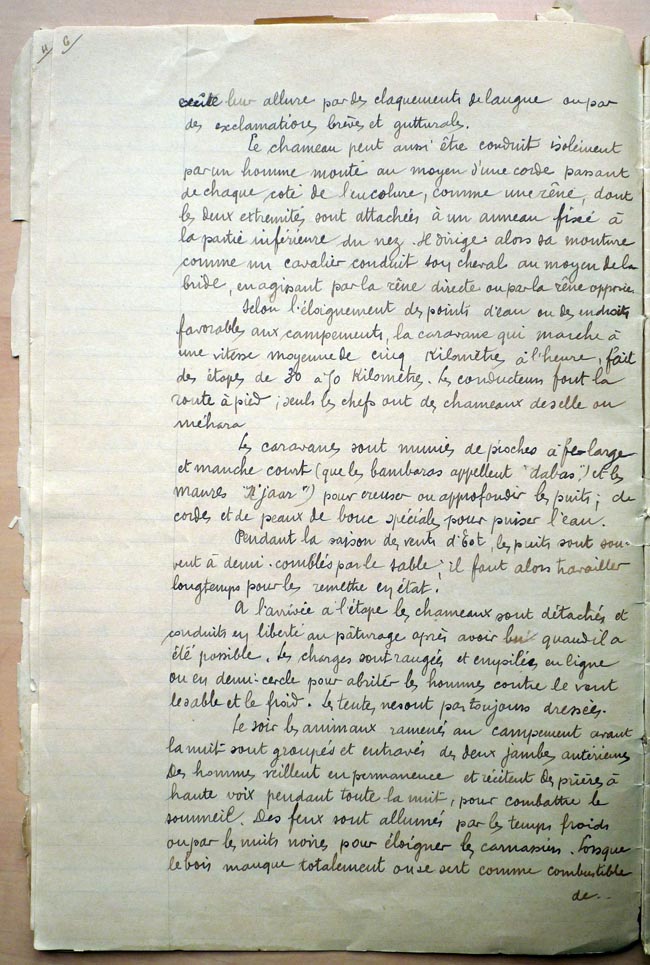 4 6
excite leur allure par des claquements de langue ou par
des exclamations brèves et gutturales.
Le chameau peut aussi être conduit isolément
par un homme monté au moyen d'une corde passant
de chaque coté de l'encolure, comme une rêne, dont
les deux extremités sont attachées à un anneau fixé à
la partie inférieure du nez. Il dirige alors sa monture
comme un cavalier conduit son cheval au moyen de la
bride, en agissant par la rêne directe ou par la rêne opposée.
Selon l'éloignement des points d'eau ou des endroits
favorables aux campements, la caravane qui marche à
une vitesse moyenne de cinq Kilomètres à l'heure, fait
des étapes de 30 à 70 Kilomètres. Les conducteurs font la
route à pied ; seuls les chefs ont des chameaux de selle ou
méhara
Les caravanes sont munies de pioches à fer large
et manche court (que les bambaras appellent "dabas") et les
maures ) pour creuser ou approfondir les puits ; de
cordes et de peaux de bouc spéciales pour puiser l'eau.
Pendant la saison des vents d'Est, les puits sont sou-
vent à demi-comblés par le sable ; il faut alors travailler
longtemps pour les remettre en état.
A l'arrivée a l'étape les chameaux sont détachés et
conduits en liberté au pâturage après avoir bu quand il a
été possible. Les charges sont rangées et empilées en ligne
ou en demi-cercle pour abriter les hommes contre le vent
le sable et le froid. Les tentes ne sont pas toujours dressées.
Le soir les animaux ramenés au campement avant
la nuit sont groupés et entravés des deux jambes antérieures
Des hommes veillent en permanence et récitent des prières à
haute voix pendant toute la nuit, pour combattre le
sommeil. Des feux sont allumés par les temps froids
ou par les nuits noires pour éloigner les carnassiers. Lorsque
le bois manque totalement on se sert comme combustible
de..